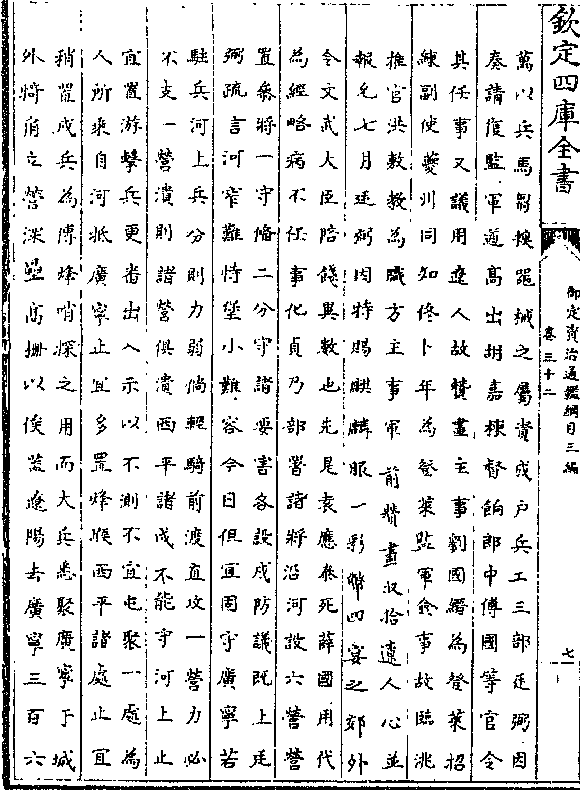 欽定四庫全書
御定資治通鑑綱目三編
卷三十二
七
萬以兵馬芻糗器械之屬責成户兵工三部廷弼因
奏請復監軍道高出胡嘉棟督餉郎中傅國等官令
其任事又議用遼人故贊畫主事劉國縉為登萊招
練副使夔州同知佟卜年為登萊監軍僉事故臨洮
推官洪敷教為職方主事軍前贊畫收拾遼人心並
報允七月廷弼因特賜麒麟服一彩幣四宴之郊外
令文武大臣陪餞異數也先是袁應泰死薛國用代
為經略病不任事化貞乃部署諸將沿河設六營營
置參將一守備二分守諸要害各設戍防議既上廷
弼疏言河窄難恃堡小難容今日但宜固守廣寧若
駐兵河上兵分則力弱倘輕騎前渡直攻一營力必
不支一營潰則諸營俱潰西平諸戍不能守河上止
宜置游擊兵更番出入示以不測不宜屯聚一處為
人所乘自河抵廣寧止宜多置烽堠西平諸處止宜
稍置戍兵為傳烽哨探之用而大兵悉聚廣寧于城
外犄角立營深壘高柵以俟蓋遼陽去廣寧三百六